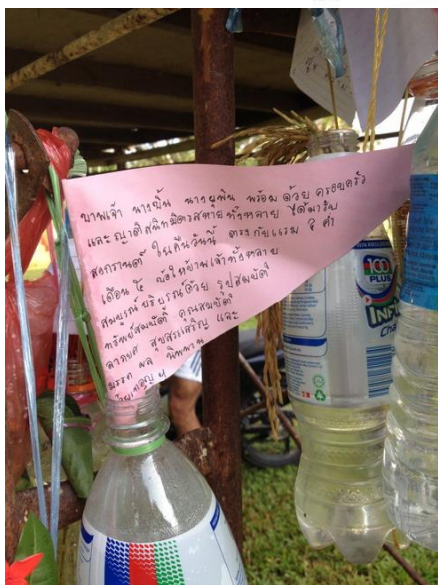 ข้าพเจ้า นางปั้น นางยุพิน พร้อมด้วย ครอบครัว
และญาติสนิทมิตรสหายทั้งหลาย ได้มารับ
สงกรานต์ ในคืนวันนี้ ตรงกับแรม ๘ ค่ำ
เดือน ๕ ขอให้ข้าพเจ้าทั้งหลาย
สมบูรณ์บริบูรณ์ด้วย รูปสมบัติ
ทรัพย์สมบัติ คุณสมบัติ
ลาภยศ สุขสรรเสริญ และ
มรรค ผล นิพพาน
100
PLUS